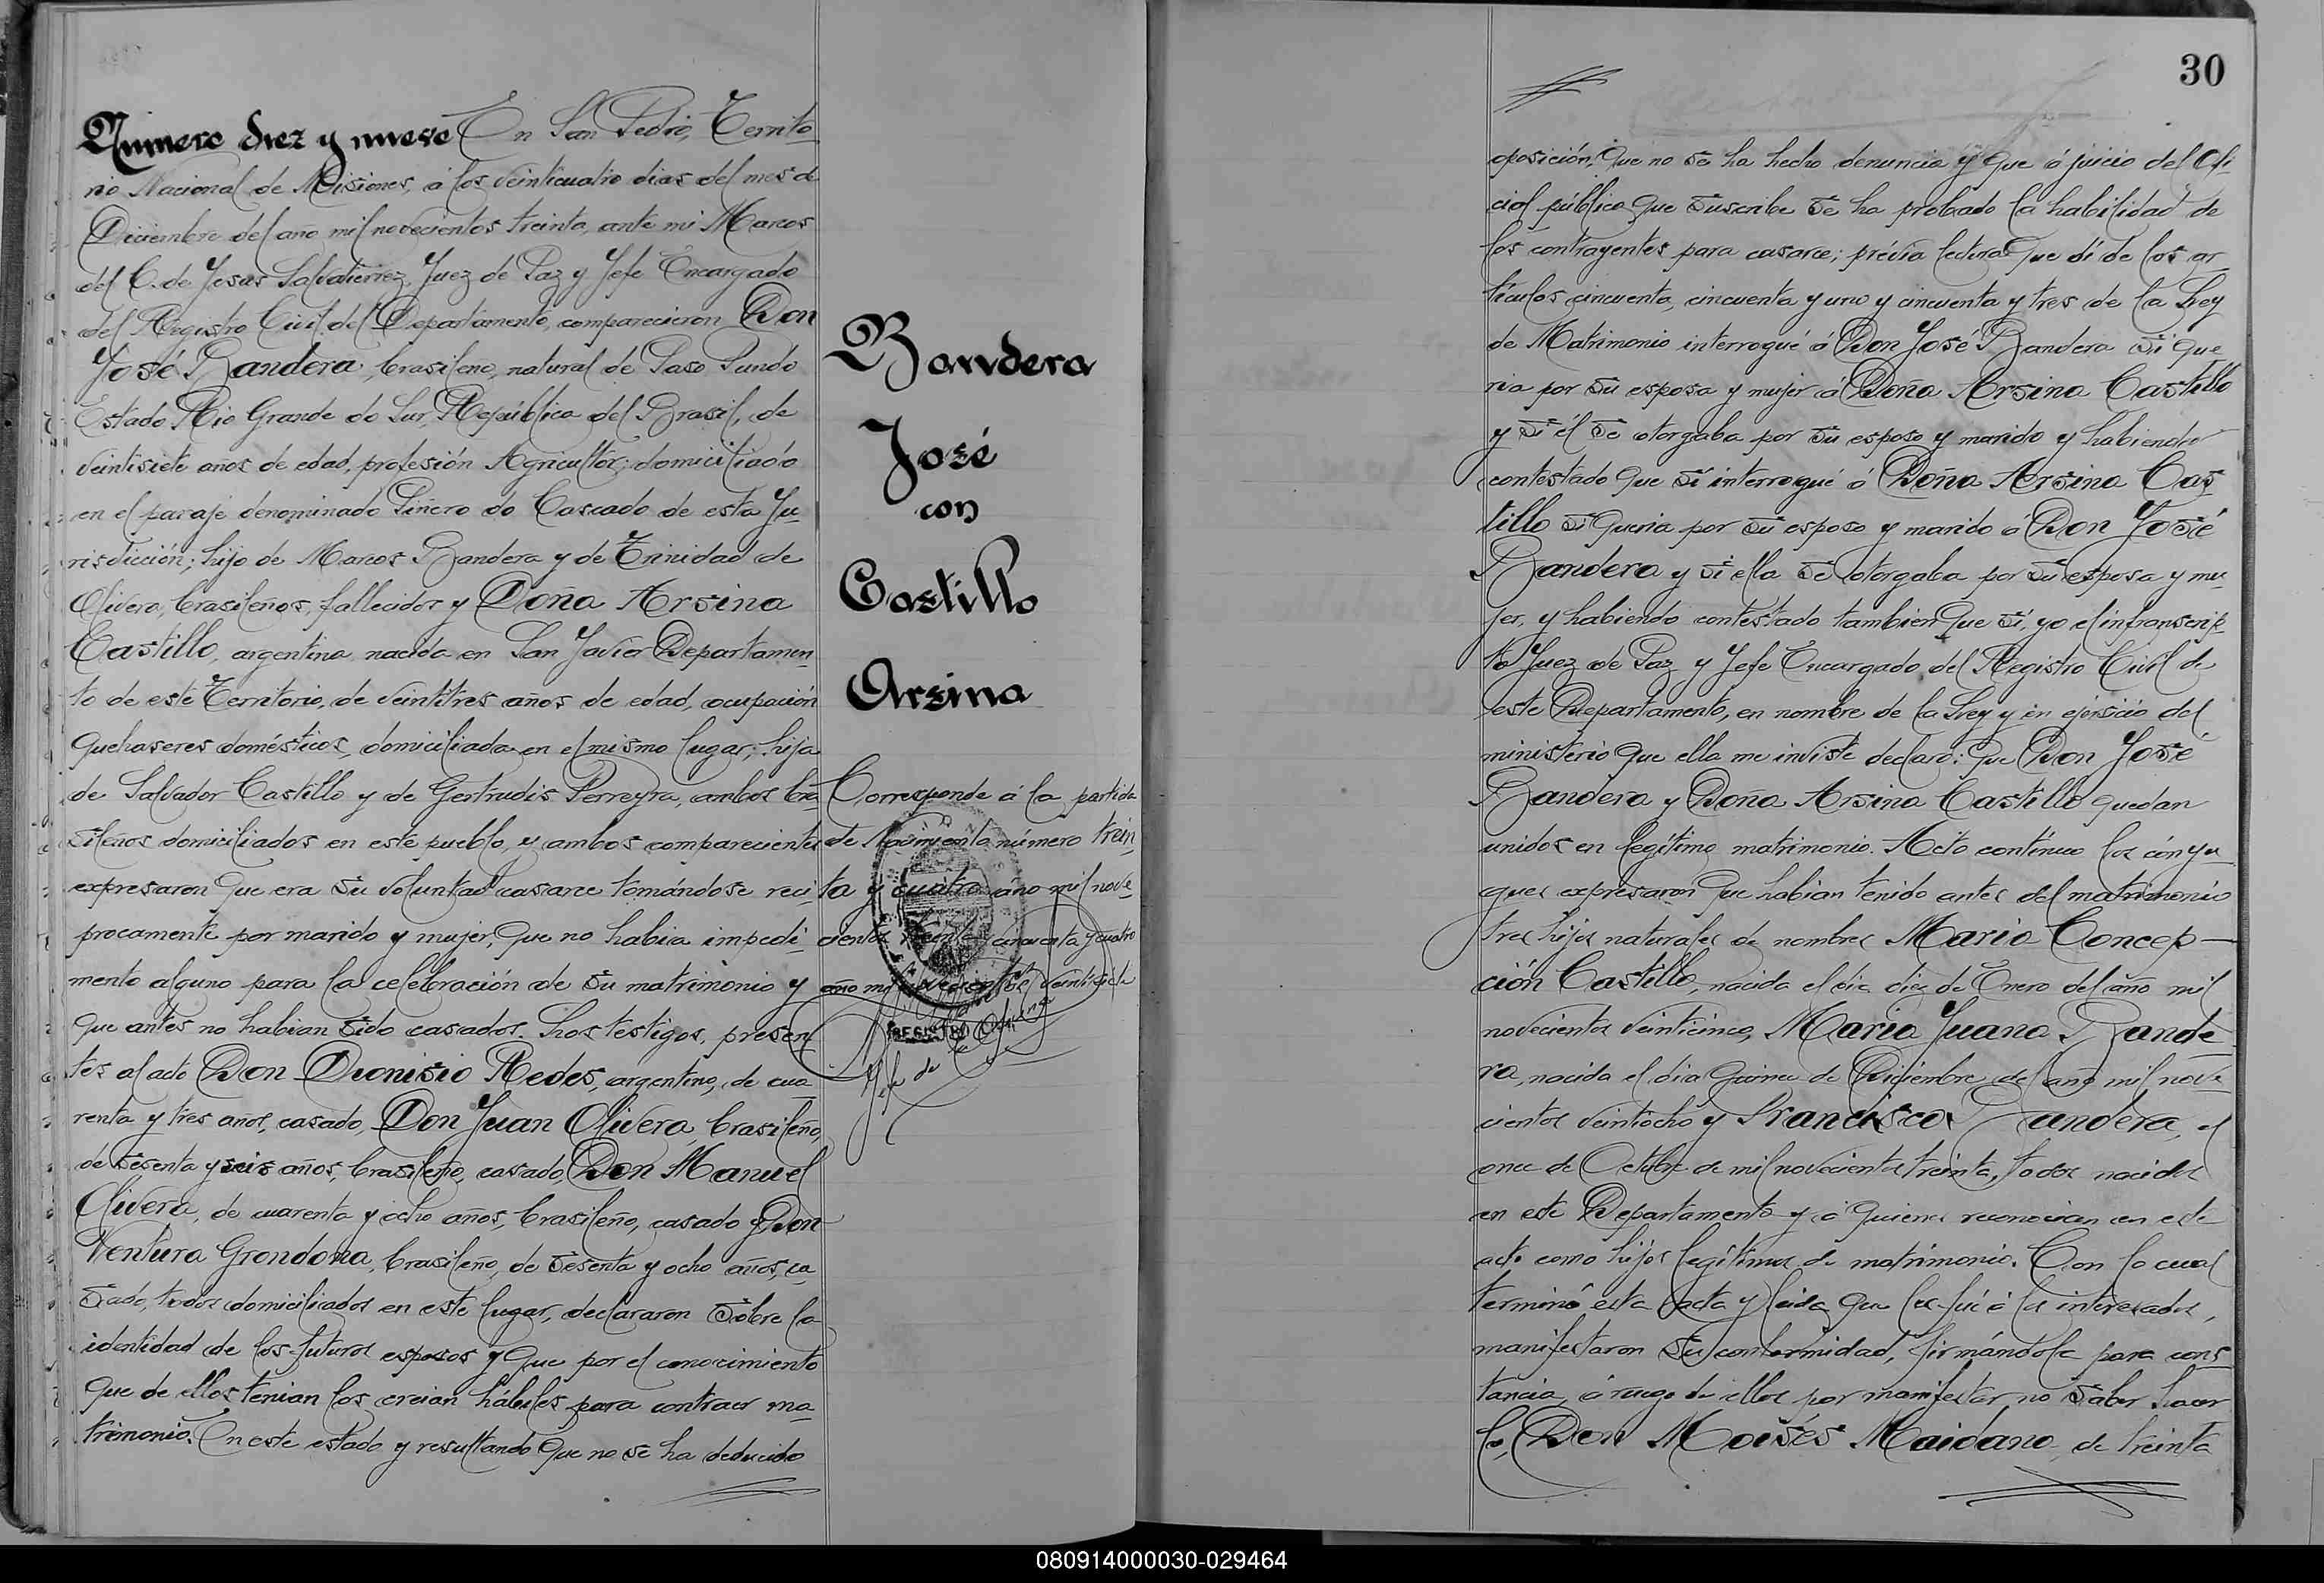 Número diez y nueve En San Pedro, Territo-
rio Nacional de Misiones, á los veinticuatro dias del mes de
Diciembre del año mil novecientos treinta, ante mi Marcos
del C. de Jesus Salvatierrez, Juez de Paz y Jefe Encargado
del Registro Civil del Departamento, comparecieron Don
José Bandera, brasileño, natural de Paso Fundo
Estado Rio Grande do Sur, República del Brasil, de
veintisiete años de edad, profesión Agricultor; domiciliado
en el paraje denominado Piñero do Cascado de esta Ju-
risdicción; hijo de Marcos Bandera y de Trinidad de
Olivera, brasileños, fallecidos y Doña Arsina
Castillo, argentina nacida en San Javier Departamen-
to de este Territorio, de veintitres años de edad, ocupación
quehaseres domésticos, domiciliada en el mismo lugar; hija
de Salvador Castillo y de Gertrudis Perreyra, ambos bra-
sileños domiciliados en este pueblo, y ambos comparecientes
expresaron que era su voluntad casarce tomándose reci-
procamente por marido y mujer, que no habia impedi-
mento alguno para la celebración de su matrimonio y
que antes no habian sido casados. Los testigos, presen-
tes al acto Don Dionisio Redes, argentino, de cua-
renta y tres años, casado, Don Juan Olivera, brasileño,
de sesenta y seis años, brasileño, casado, Don Manuel
Olivera, de cuarenta y ocho años, brasileño, casado y Don
Ventura Grondona, brasileño, de sesenta y ocho años, ca-
sado, todos domiciliados en este lugar, declararon sobre la
identidad de los futuros esposos y que por el conocimiento
que de ellos tenian los creian hábiles para contraer ma-
trimonio. En este estado y resultando que no se ha deducido
Bandera
José
con
Castillo
Arsina
Corresponde á la partida
de Nacimiento número trein-
ta y cuatro año mil nove-
cientos veinte cincuenta y cuatro
año mil novecientos veintisiete
REGISTRO
Jefe de la
30
oposición, que no se ha hecho denuncia y que á juicio del Ofi-
cial público que suscribe se ha probado la habilidad de
los contrayentes para casarce; prévia lectura que dí de los ar-
tículos cincuenta, cincuenta y uno y cincuenta y tres de la Ley
de Matrimonio interrogué á Don José Bandera si que-
ria por su esposa y mujer á Doña Arsina Castillo
y si él se otorgaba por su esposo y marido y habiendo
contestado que sí interrogué á Doña Arsina Cas-
tillo si queria por su esposo y marido á Don José
Bandera y si ella se otorgaba por su esposa y mu-
jer, y habiendo contestado tambien que sí, yo el infranscrip-
to Juez de Paz y Jefe Encargado del Registro Civil de
este Departamento, en nombre de la Ley y en ejersicio del
ministerio que ella me inviste declaro: que Don José
Bandera y Doña Arsina Castillo quedan
unidos en legítimo matrimonio. Acto contínuo los cónyu-
gues expresaron que habian tenido antes del matrimonio
tres hijos naturales de nombres Maria Concep-
ción Castillo, nacida el dia diez de Enero del año mil
novecientos veinticinco, Maria Juana Bande-
ra, nacida el dia quince de Diciembre del año mil nove-
cientos veintiocho y Francisco Bandera, el
once de Octubre de mil novecientos treinta, todos nacidos
en este Departamento y á quienes reconocian en este
acto como hijos legítimos de matrimonio. Con lo cual
terminó esta acta y leida que les fué á los interesados,
manifestaron su conformidad, firmándola para cons-
tancia, á ruego de ellos por manifestar no saber hacer-
lo, Don Moisés Maidana, de treinta
080914000030-029464